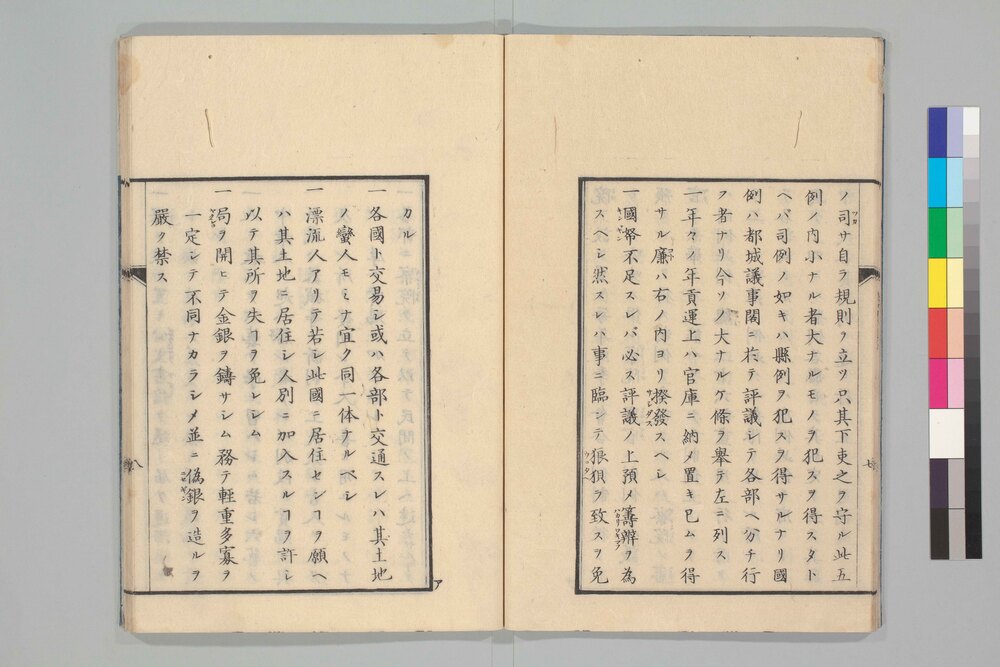 ノ司サ自ラ規則ヲ立ツ只其下吏之ヲ守ル此五
例ノ内小ナル者大ナルモノヲ犯スヲ得スタト
ヘバ司例ノ如キハ縣例ヲ犯スヲ得サルナリ國
例ハ都城議事閣ニ於テ評議シテ各部ヘ分チ行
フ者ナリ今ソノ大ナルケ條ヲ擧テ左ニ列ス
一年々ノ年貢運上ハ官庫ニ納メ置キ已ムヲ得
サル廉ハ右ノ内ヨリ撥發スヘシ
一國帑不足スレバ必ス評議ノ上預メ籌辦ヲ為
スヘシ然スレハ事ニ臨ンテ狼狽ヲ致スヲ免
カル
一各國ト交易シ或ハ各部ト交通スレハ其土地
ノ蠻人モミナ宜ク同一体ナルベシ
一漂流人アリテ若シ此國ニ居住セシヿヲ願ヘ
ハ其土地ニ居住シ人別ニ加入スルヿヲ許シ
以テ其所ヲ失フヲ免レシム
一局ヲ開ヒテ金銀ヲ鑄サシム務テ輕重多寡ヲ
一定シテ不同ナカラシメ並ニ偽銀ヲ造ルヲ
嚴ク禁ス
八